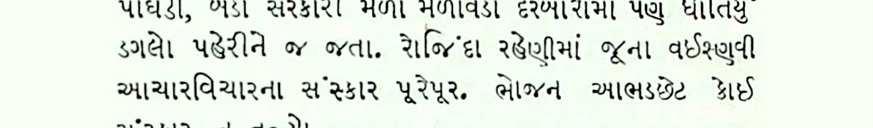 પાઘડી, બંડી સરકારી મેળા મેળાવડા દરબારોમાં પણ ધોતિયું
ડગલો પહેરીને જ જતા. રોજિંદા રહેણીમાં જૂના વઈશ્ણવી
આચારવિચારના સંસ્કાર પૂરેપૂર. ભોજન આભડછેટ કોઈ